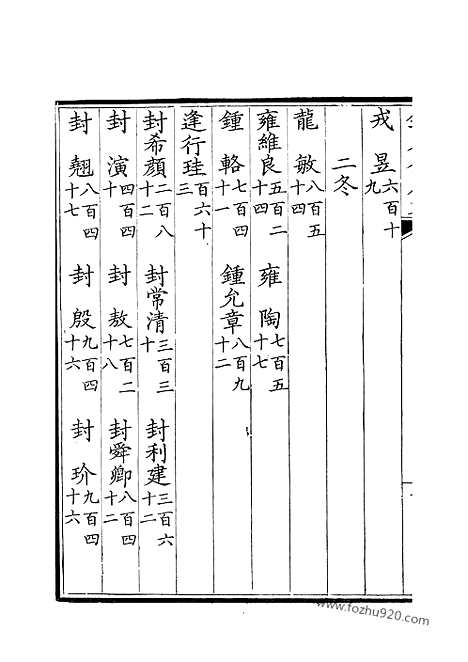 戎昱六百十九
二冬
龍敏八百五十四
雍維良五百二十四 雍陶七百五十七
鍾輅七百四十一 鍾允章八百九十二
逢行珪百六十三
封希顏二百八十二 封常清三百三十 封利建三百六十二
封演四百四十 封敖七百二十八 封舜卿八百四十二
封翹八百四十七 封殷九百四十六 封玠九百四十六
www.fozhu920.com